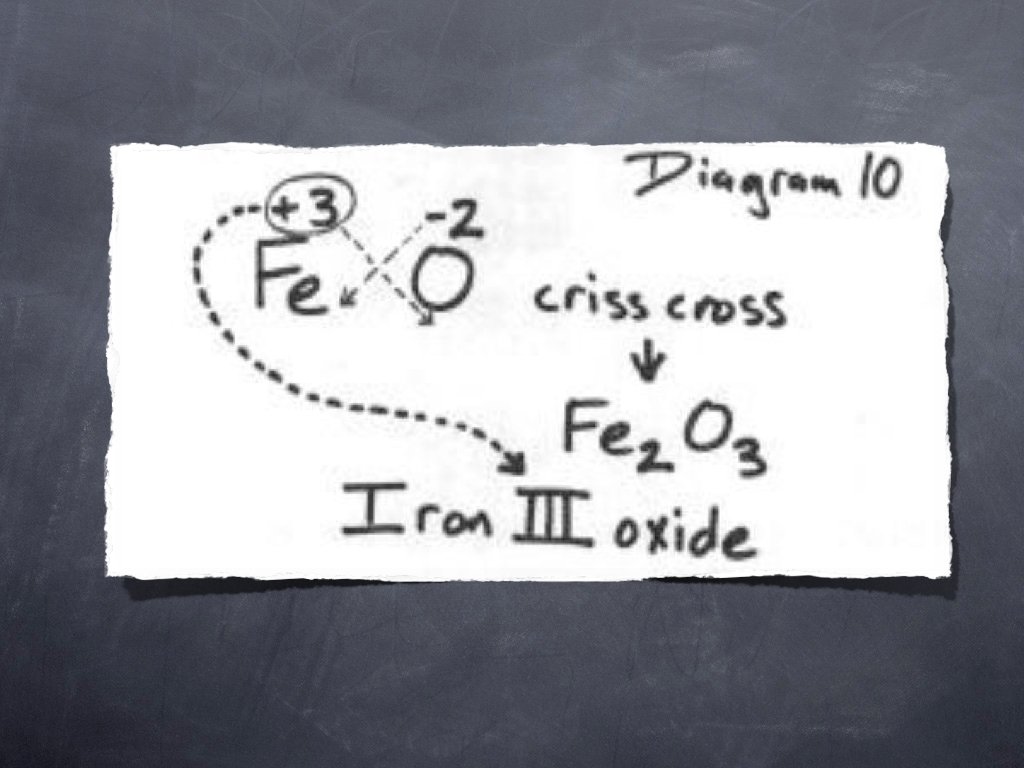 Diagram 10
+3 -2
Fe O criss cross
↓
Fe₂O₃
Iron III oxide